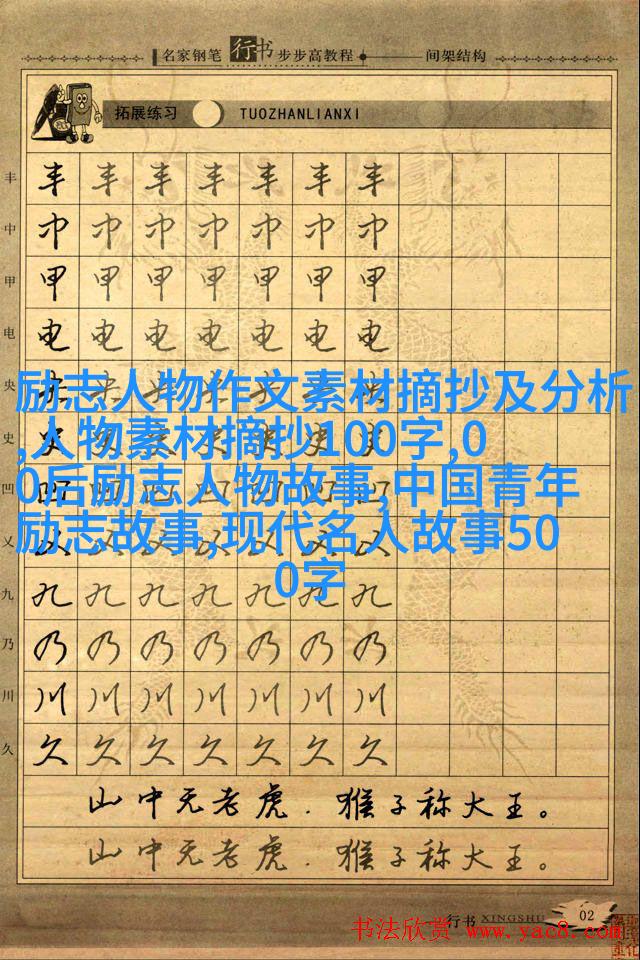 名家钢笔 行书 步步高教程 间架结构
拓展练习 TUOZHANLIANXI
丰 丰 丰 丰 丰 丰 丰 丰
中 中 中 中 中 中 中 中
甲 甲 甲 甲 甲 甲 甲 甲
电 电 电 电 电 电 电 电
央
励志人物作文素材摘抄及分析
史
,人物素材摘抄100字,0
凹
0后励志人物故事,中国青年
励志故事,现代名人故事50
0字
九 九 九 九 九 九 九 九
乃 乃 乃 乃 乃 乃 乃 乃
川 川 川 川 川 川 川 川
久 久 久 久 久 久 久 久
山中无老虎.猴子称大王。
山中无老虎.猴子称大王。
行书 XINGSHU 02
书法欣赏 www.yac8.com